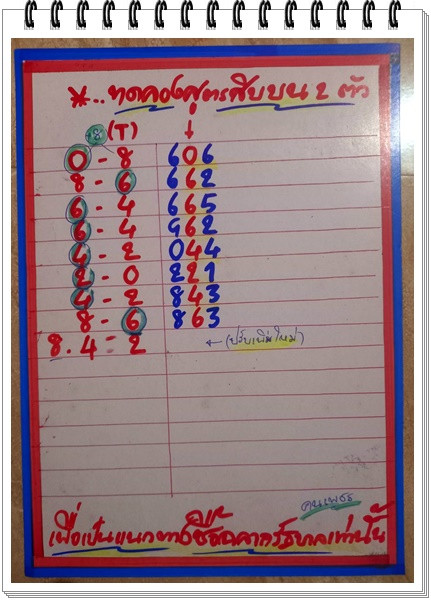 *..ทดลองสูตรสิบบน 2 ตัว
+8 (T) ↓
0 - 8 606
8 - 6 662
6 - 4 665
6 - 4 962
4 - 2 044
2 - 0 221
4 - 2 843
8 - 6 863
8.4 - 2 ← (ปรับเพิ่มใหม่)
คนเพชร
เพื่อเป็นแนวทางซื้อฉลากรัฐบาลเท่านั้น